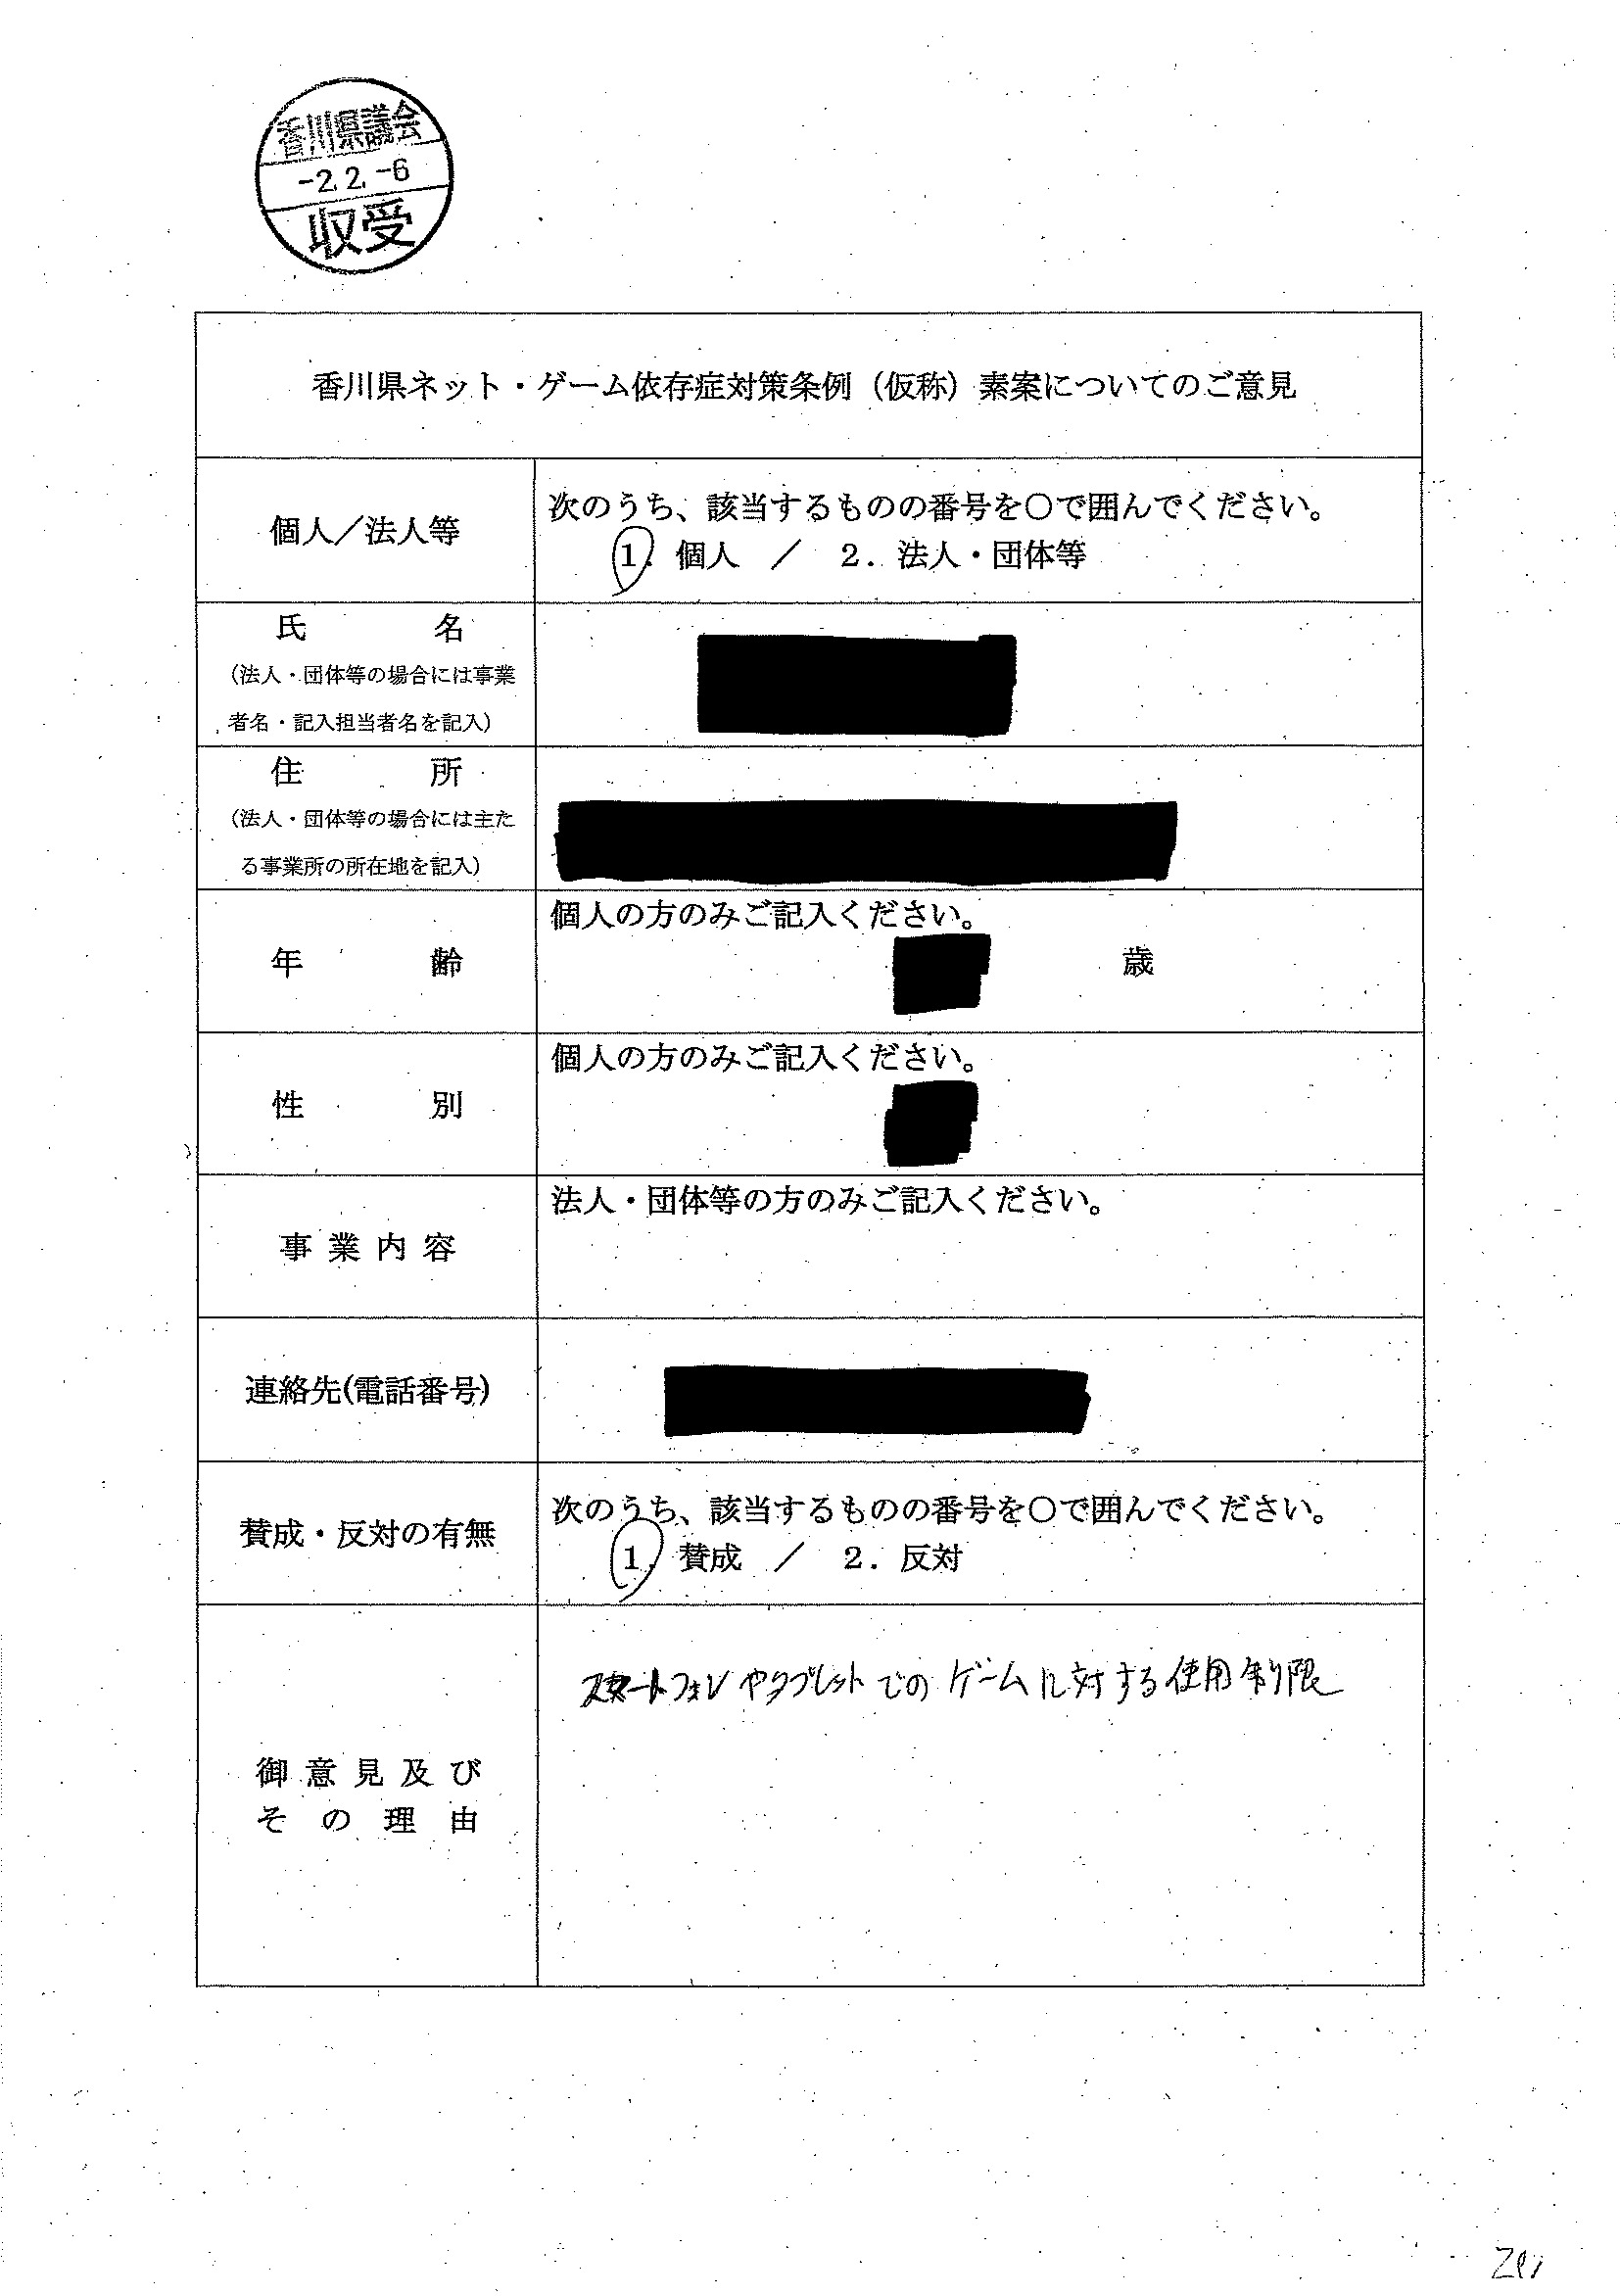 香川県議会
-2.2.-6
収受
香川県ネット・ゲーム依存症対策条例（仮称）素案についてのご意見
個人／法人等
次のうち、該当するものの番号を〇で囲んでください。
1. 個人 ／ 2. 法人・団体等
氏名
（法人・団体等の場合には事業
者名・記入担当者名を記入）
住所
（法人・団体等の場合には主た
る事業所の所在地を記入）
年齢
個人の方のみご記入ください。
歳
性別
個人の方のみご記入ください。
事業内容
法人・団体等の方のみご記入ください。
連絡先(電話番号)
賛成・反対の有無
次のうち、該当するものの番号を〇で囲んでください。
1. 賛成 ／ 2. 反対
御意見及び
その理由
スマートフォンやタブレットでのゲームに対する使用制限